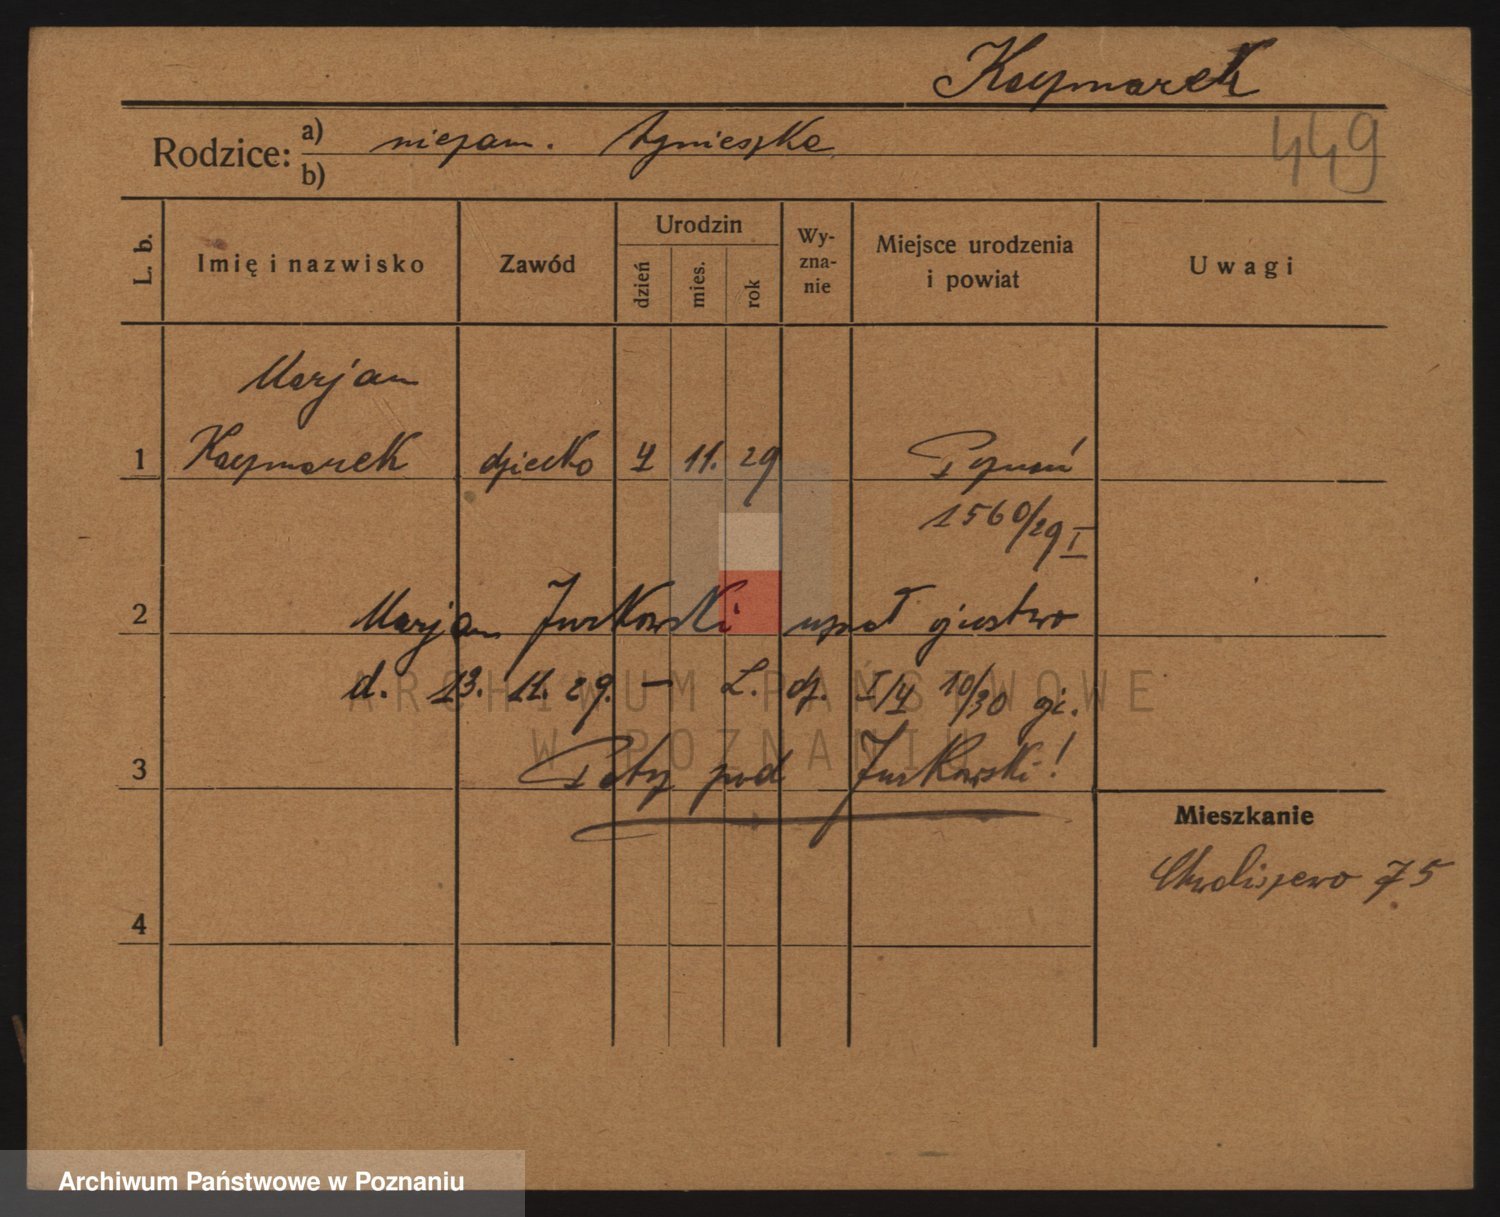 Kaczmarek
449
Rodzice: a) niezam. Agnieszka
b)
L. b. Imię i nazwisko Zawód Urodzin dzień mies. rok Wy-zna-nie Miejsce urodzenia i powiat Uwagi
Marjan
1 Kaczmarek dziecko 4 11. 29 Poznań
1560/29 I
2 Marjan Jurkowski uznał ojcostwo
d. 13. 11. 29. — L. dz. I/4 10/30
3 Patrz pod Jurkowski!
Mieszkanie
Chwaliszewo 75
4
ARCHIWUM PAŃSTWOWE
W POZNANIU
Archiwum Państwowe w Poznaniu